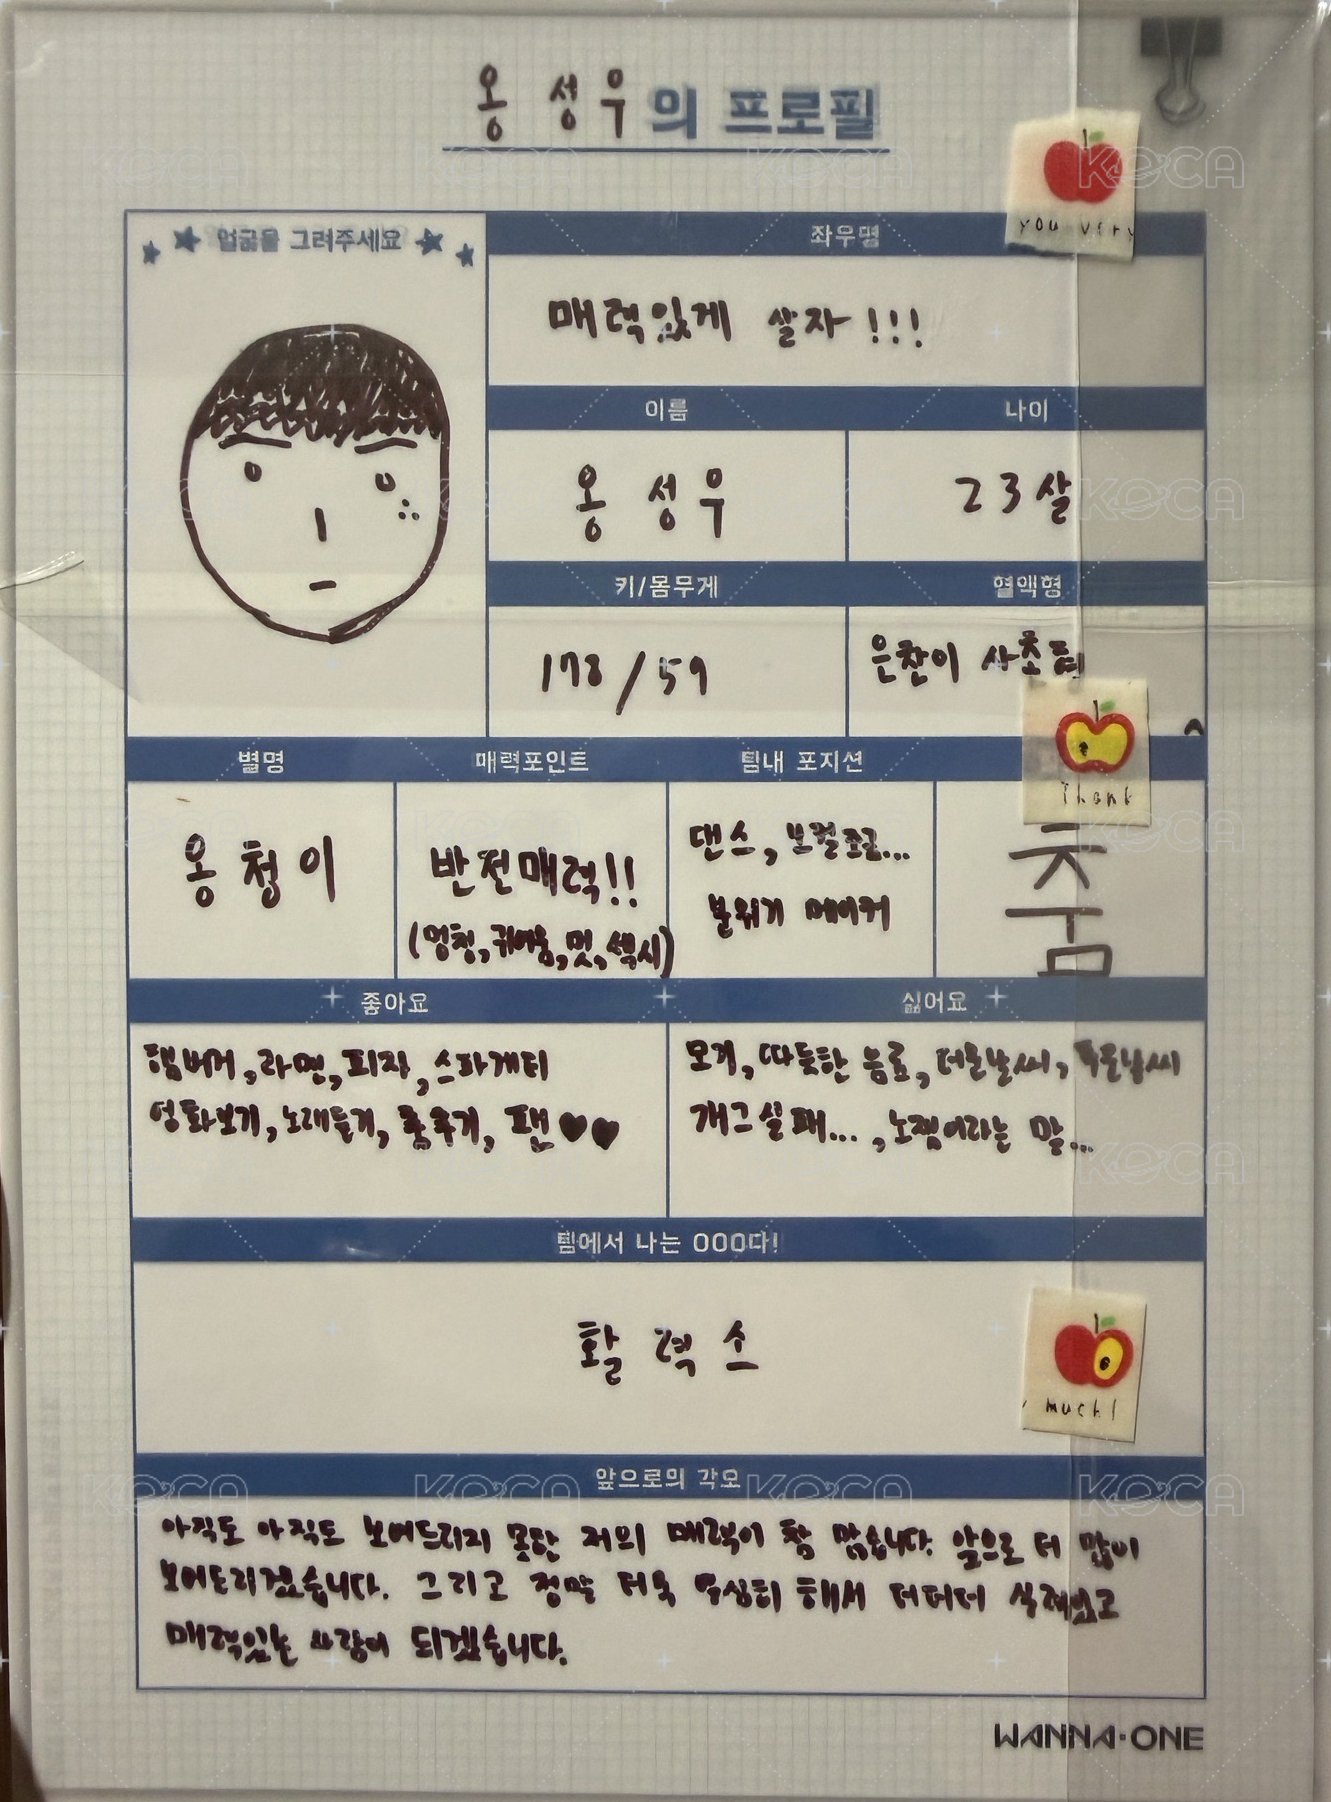 옹 성 우의 프로필
얼굴을 그려주세요
좌우명
you very
매력있게 살자!!!
이름
나이
옹 성 우
23살
키/몸무게
혈액형
178/59
별명
매력포인트
팀내 포지션
Thank
옹청이
반전매력!!
(멍청, 귀여움, 멋, 섹시)
댄스, 보컬조금...
분위기 메이커
춤
좋아요
싫어요
햄버거, 라면, 피자, 스파게티
영화보기, 노래듣기, 춤추기, 팬♥♥
모기, 따듯한 음료, 더운날씨, 추운날씨
개그실패..., 노잼이라는 말...
팀에서 나는 OOO다!
활력소
much!
앞으로의 각오
아직도 아직도 보여드리지 못한 저의 매력이 참 많습니다. 앞으로 더 많이
보여드리겠습니다. 그리고 정말 더욱 열심히 해서 더더더 실력있고
매력있는 사람이 되겠습니다.
WANNA·ONE
KOCA